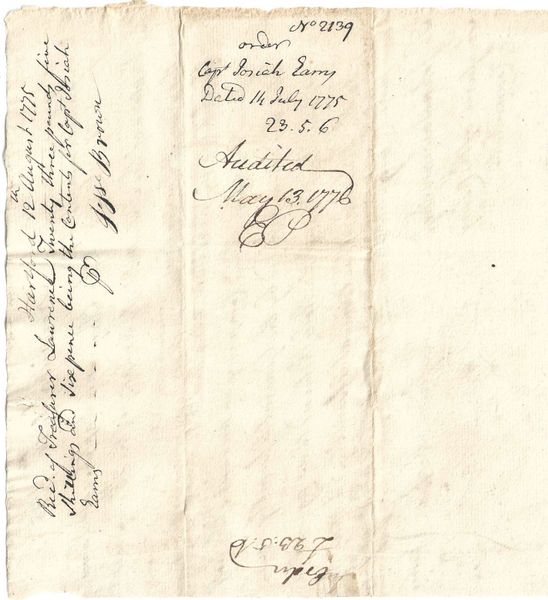 No 2139
order
Capt Josiah Eams
Dated 14 July 1775
23.5.6
Audited
May 13. 1776
EP
Hartford 12th August 1775
Recd. of Treasurer Lawrence Twenty three pounds five
Shillings and Sixpence being the Contents for Capt Josiah
Eams
Brown
Order
£ 23.5.6